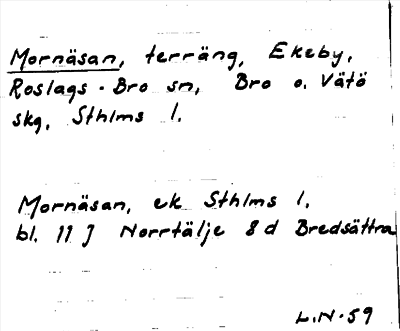 Mornäsan, terräng, Ekeby,
Roslags-Bro sn, Bro o. Vätö
skg, Sthlms l.
Mornäsan, ek Sthlms l.
bl. 11 J Norrtälje 8d Bredsättra
L.N-59